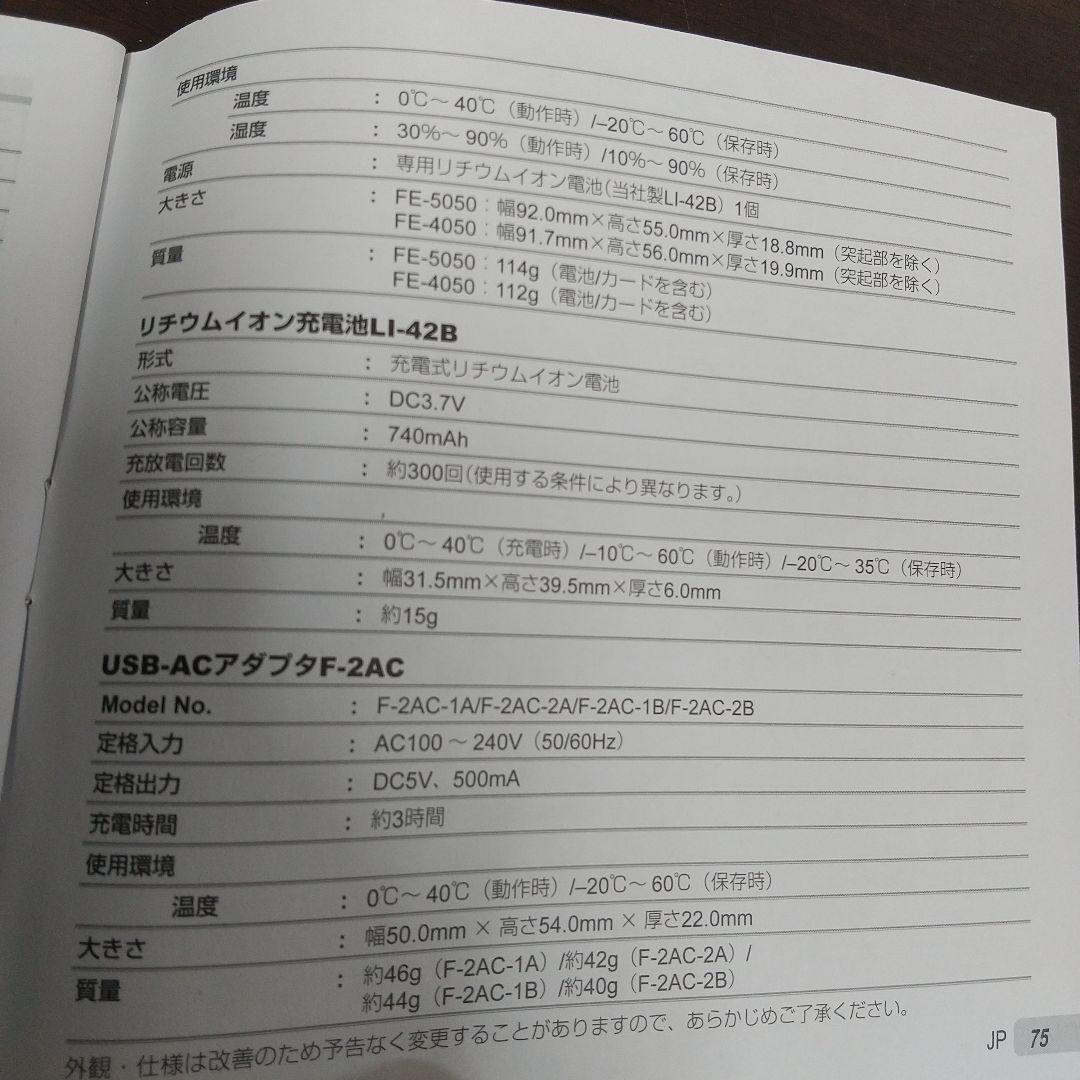 使用環境
温度 : 0℃～40℃（動作時）/–20℃～60℃（保存時）
湿度 : 30%～90%（動作時）/10%～90%（保存時）
電源 : 専用リチウムイオン電池（当社製LI-42B）1個
大きさ : FE-5050：幅92.0mm×高さ55.0mm×厚さ18.8mm（突起部を除く）
FE-4050：幅91.7mm×高さ56.0mm×厚さ19.9mm（突起部を除く）
質量 : FE-5050：114g（電池/カードを含む）
FE-4050：112g（電池/カードを含む）
リチウムイオン充電池LI-42B
形式 : 充電式リチウムイオン電池
公称電圧 : DC3.7V
公称容量 : 740mAh
充放電回数 : 約300回（使用する条件により異なります。）
使用環境
温度 : 0℃～40℃（充電時）/–10℃～60℃（動作時）/–20℃～35℃（保存時）
大きさ : 幅31.5mm×高さ39.5mm×厚さ6.0mm
質量 : 約15g
USB-ACアダプタF-2AC
Model No. : F-2AC-1A/F-2AC-2A/F-2AC-1B/F-2AC-2B
定格入力 : AC100～240V（50/60Hz）
定格出力 : DC5V、500mA
充電時間 : 約3時間
使用環境
温度 : 0℃～40℃（動作時）/–20℃～60℃（保存時）
大きさ : 幅50.0mm × 高さ54.0mm × 厚さ22.0mm
質量 : 約46g（F-2AC-1A）/約42g（F-2AC-2A）/
約44g（F-2AC-1B）/約40g（F-2AC-2B）
外観・仕様は改善のため予告なく変更することがありますので、あらかじめご了承ください。
JP 75